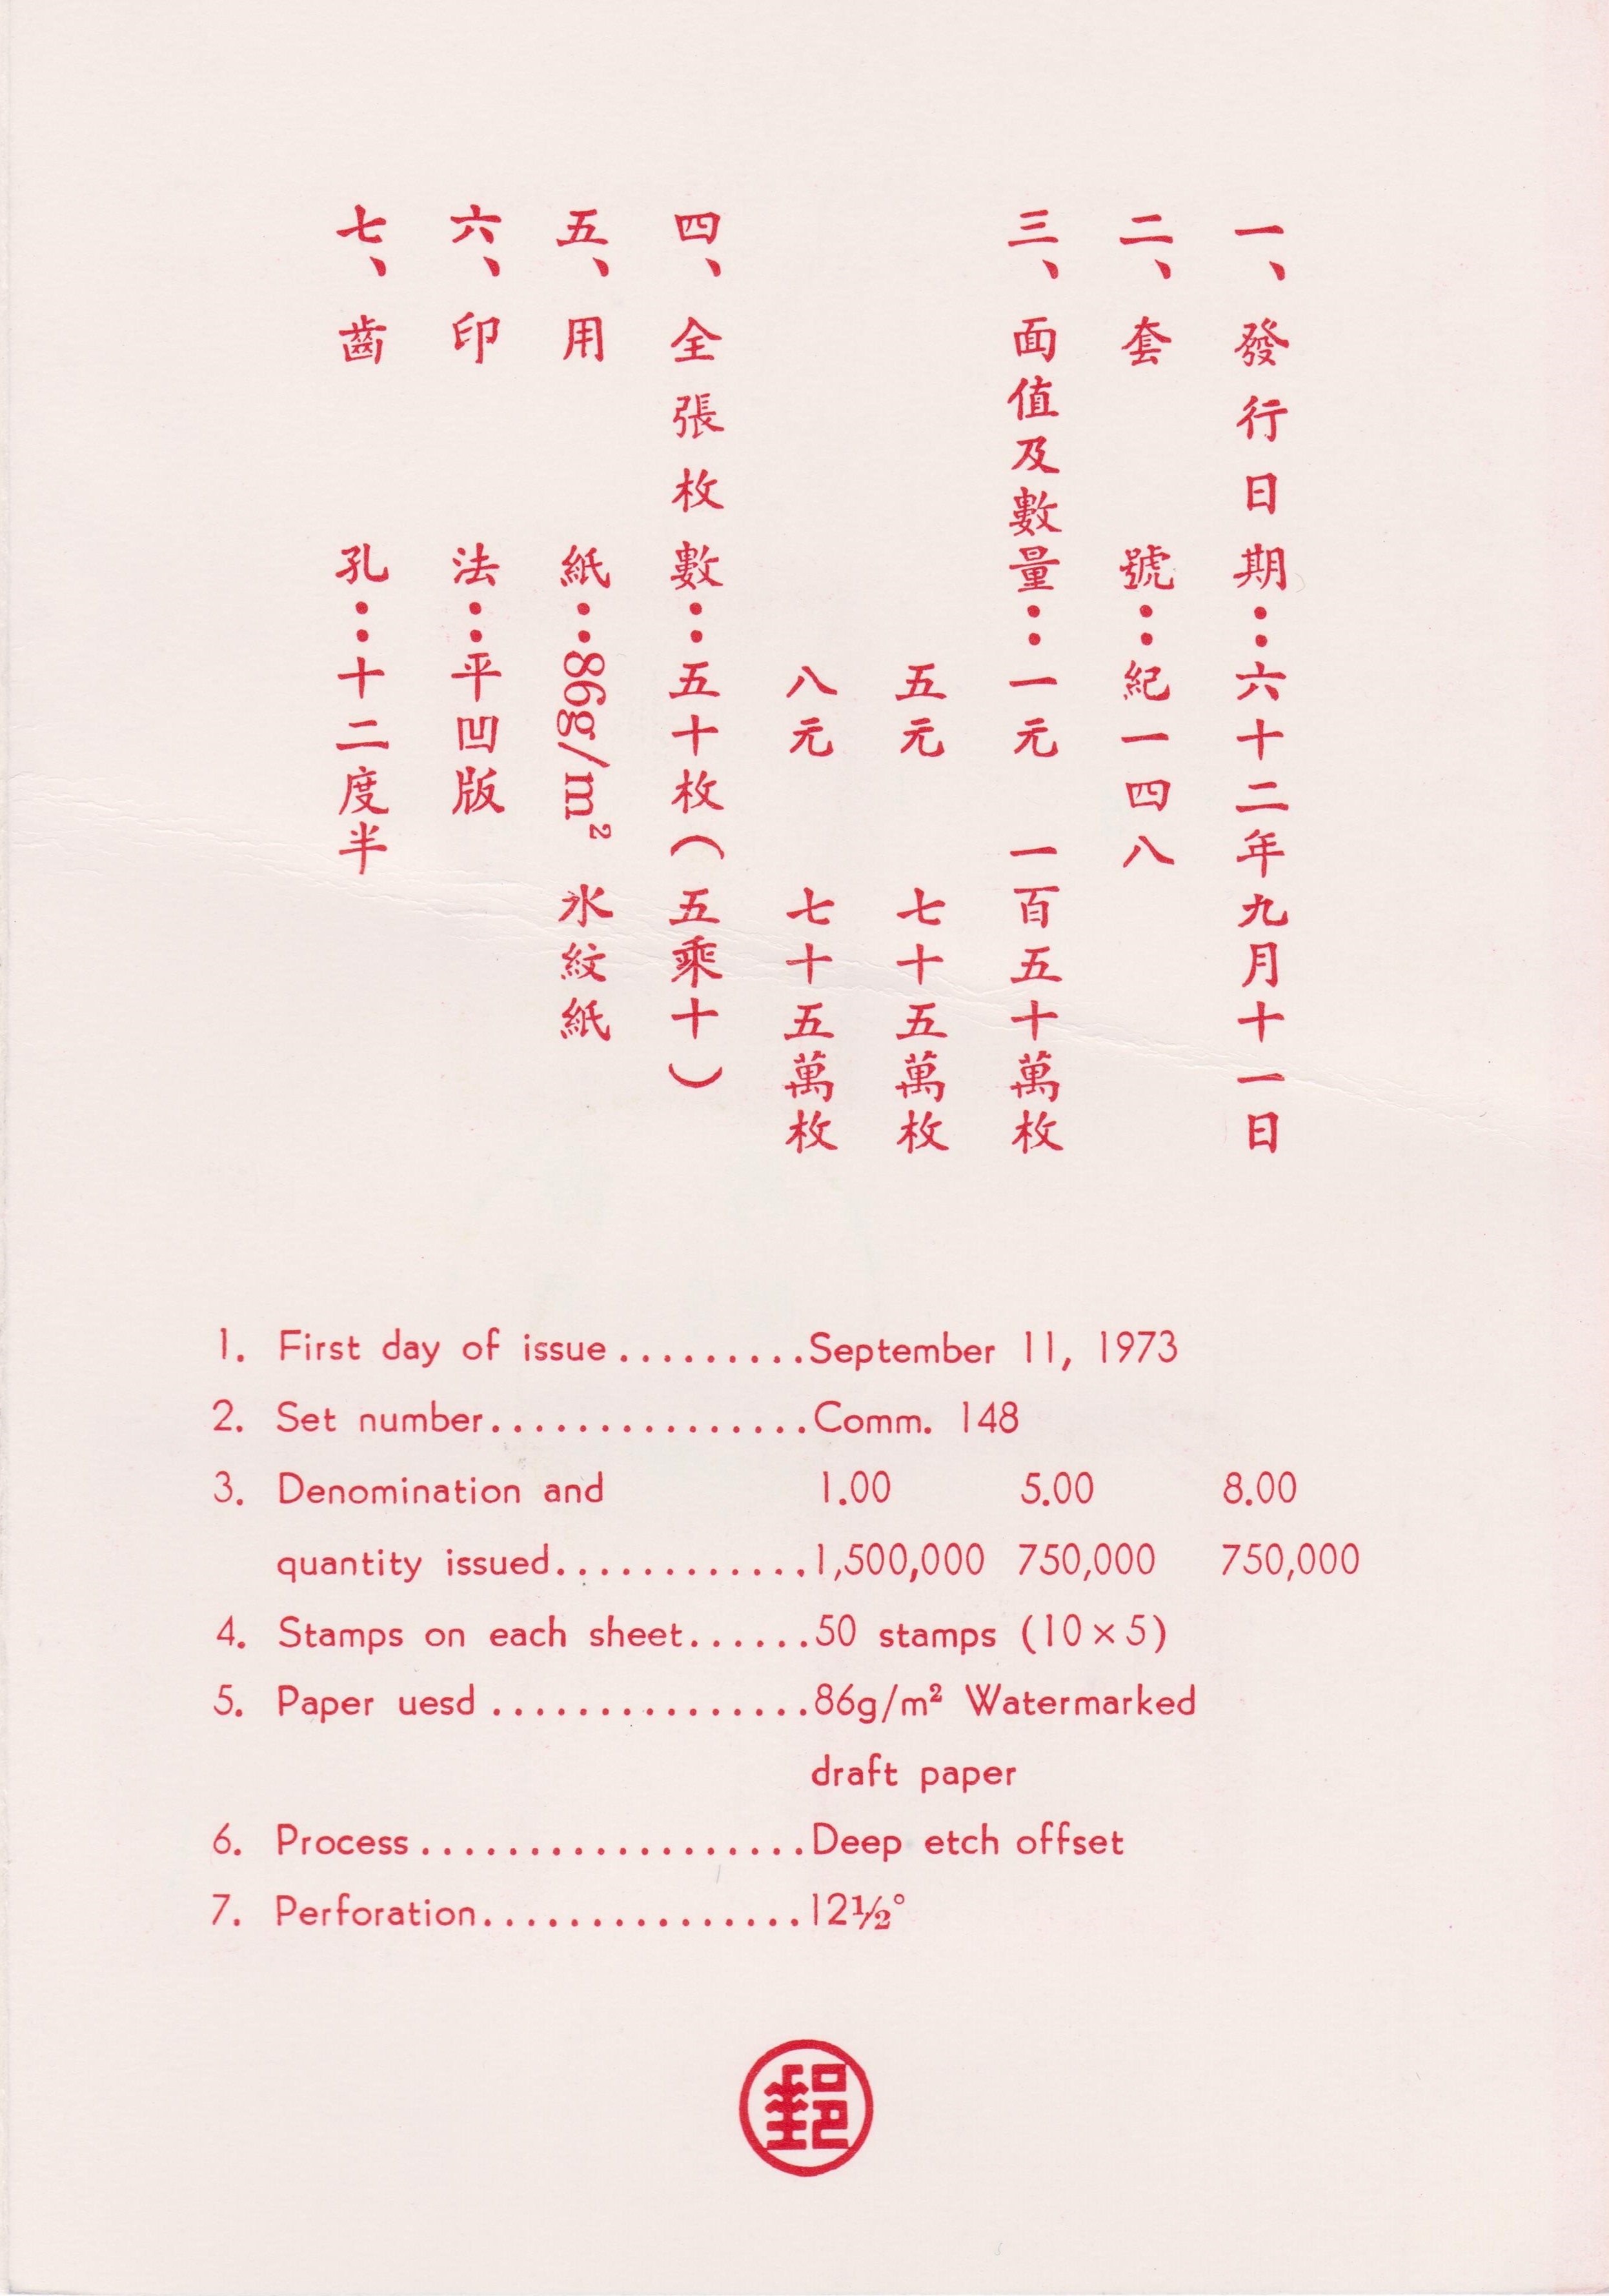 一、發行日期：六十二年九月十一日
二、套號：紀一四八
三、面值及數量：一元 一百五十萬枚
五元 七十五萬枚
八元 七十五萬枚
四、全張枚數：五十枚（五乘十）
五、用紙：86g/m² 水紋紙
六、印法：平凹版
七、齒孔：十二度半
1. First day of issue.........September 11, 1973
2. Set number...............Comm. 148
3. Denomination and 1.00 5.00 8.00
quantity issued............1,500,000 750,000 750,000
4. Stamps on each sheet......50 stamps (10×5)
5. Paper uesd ...............86g/m² Watermarked
draft paper
6. Process..................Deep etch offset
7. Perforation...............12½°
郵